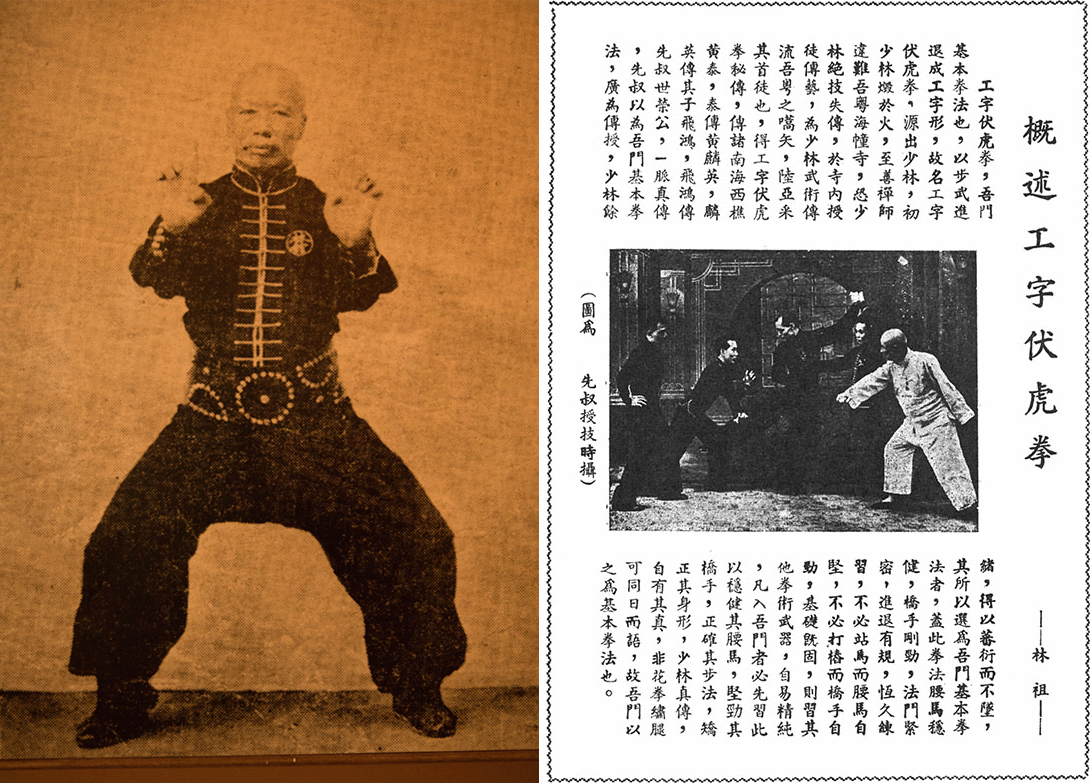 概述工字伏虎拳
——林祖——
工字伏虎拳,吾門
基本拳法也,以步武進
退成工字形,故名工字
伏虎拳。源出少林,初
少林燬於火,至善禪師
違難吾粵海幢寺,恐少
林絕技失傳,於寺內授
徒傳藝,為少林武術傳
流吾粵之嚆矢,陸亞采
其首徒也,得工字伏虎
拳秘傳,傳諸南海西樵
黃泰,泰傳黃麟英,麟
英傳其子飛鴻,飛鴻傳
先叔世榮公,一脈真傳
,先叔以為吾門基本拳
法,廣為傳授,少林餘
(圖爲 先叔授技時攝)
緒,得以蕃衍而不墜,
其所以選爲吾門基本拳
法者,蓋此拳法腰馬穩
健,橋手剛勁,法門緊
密,進退有規,恆久鍊
習,不必站馬而腰馬自
堅,不必打樁而橋手自
勁,基礎既固,則習其
他拳術武器,自易精純
,凡入吾門者必先習此
以穩健其腰馬,堅勁其
橋手,正確其步法,矯
正其身形,少林真傳,
自有其真,非花拳繡腿
可同日而語,故吾門以
之爲基本拳法也。